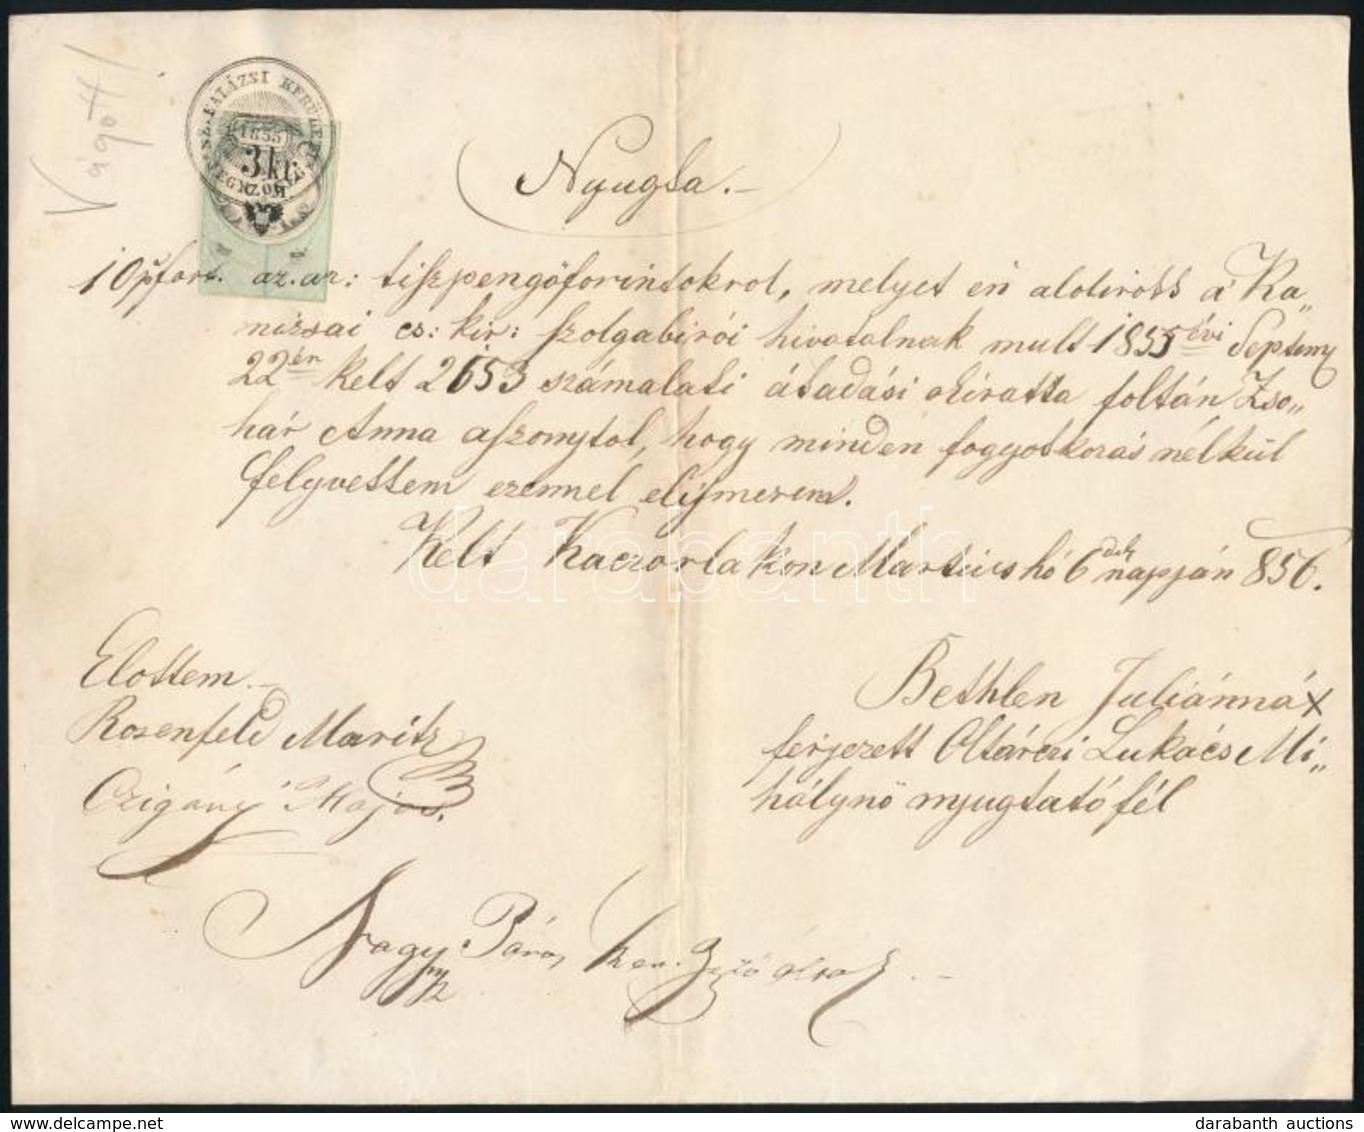 Vágott!
SZ. BALÁZSI KERÜLETI
JEGYZŐSÉG
1855
3 kr.
Nyugta.–
10 pfort. az. az: tiszpengőforintokrol, melyet én alolirott a Ka„
nizsai cs: kir: szolgabirói hivatalnak mult 1855 évi Septemr
22én kelt 2653 számalati átadási okiratta foltán Zso„
hár Anna aszonytol, hogy minden fogyotkozás nélkül
felyvettem ezennel elismerem.
Kelt Kaczorlakon Martius hó 6dik napján 856.
Elottem.–
Rosenfeld Moritz
Czigány Majos.
Bethlen Juliánná x
ferjezett Oltárczi Lukács Mi„
hálynö nyugtató fél
Nagy
darabanth
© darabanth auctions
darabanth auctions